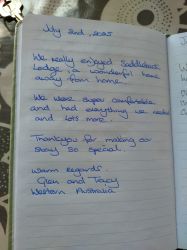 July 2nd, 2025
We really enjoyed Saddleback
Lodge, a wonderful home
away from home.
We were super comfortable
and had everything we needed
and lots more.
Thankyou for making our
stay so special.
Warm regards.
Glen and Tracy
Western Australia